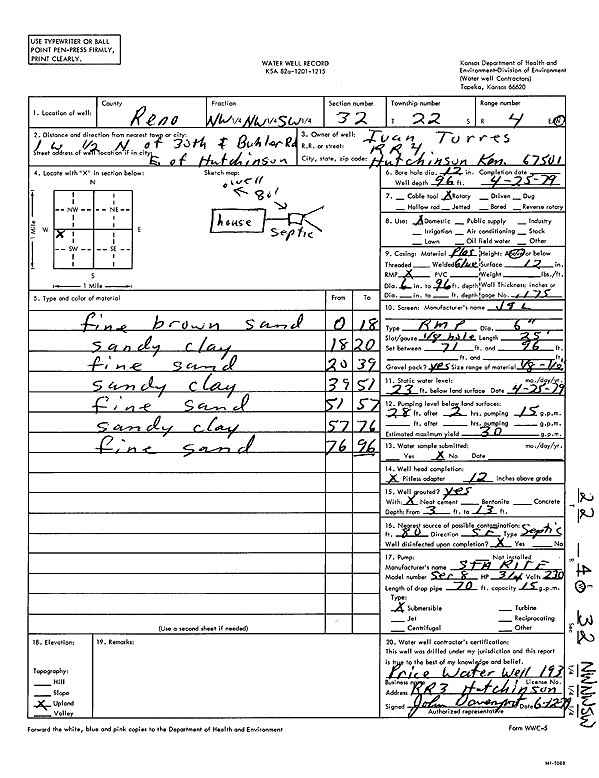 USE TYPEWRITER OR BALL
POINT PEN-PRESS FIRMLY,
PRINT CLEARLY.
WATER WELL RECORD
KSA 82a-1201-1215
Kansas Department of Health and
Environment-Division of Environment
(Water well Contractors)
Topeka, Kansas 66620
1. Location of well: County Reno Fraction NW 1/4 NW 1/4 SW 1/4 Section number 32 Township number T 22 S Range number R 4 E/W
2. Distance and direction from nearest town or city:
1 W 1/2 N of 30th & Buhler Rd
Street address of well location if in city:
E of Hutchinson
3. Owner of well: Ivan Torres
R.R. or street: RR 4
City, state, zip code: Hutchinson Kan. 67501
4. Locate with "X" in section below:
N
NW NE
W X E
SW SE
S
1 Mile
1 Mile
Sketch map:
o well
80'
house
Septic
6. Bore hole dia. 12 in. Completion date
Well depth 96 ft. 4-25-79
7. Cable tool X Rotary Driven Dug
Hollow rod Jetted Bored Reverse rotary
8. Use: X Domestic Public supply Industry
Irrigation Air conditioning Stock
Lawn Oil field water Other
9. Casing: Material Plas Height: Above or below
Threaded Welded Glue Surface 12 in.
RMP X PVC Weight lbs./ft.
Dia. 6 in. to 96 ft. depth Wall Thickness: inches or
Dia. in. to ft. depth gage No. .175
5. Type and color of material From To
fine brown sand 0 18
sandy clay 18 20
fine sand 20 39
sandy clay 39 51
fine sand 51 57
sandy clay 57 76
fine sand 76 96
(Use a second sheet if needed)
10. Screen: Manufacturer's name
Type RMP Dia. 6"
Slot/gauze 1/8 hole Length 25'
Set between 71 ft. and 96 ft.
ft. and ft.
Gravel pack? yes Size range of material
11. Static water level: mo./day/yr.
23 ft. below land surface Date 4-25-79
12. Pumping level below land surfaces:
28 ft. after 2 hrs. pumping 15 g.p.m.
ft. after hrs. pumping g.p.m.
Estimated maximum yield 30 g.p.m.
13. Water sample submitted: mo./day/yr.
Yes X No Date
14. Well head completion:
X Pitless adapter 12 Inches above grade
15. Well grouted? yes
With: X Neat cement Bentonite Concrete
Depth: From 3 ft. to 13 ft.
16. Nearest source of possible contamination:
ft. 80 Direction SE Type Septic
Well disinfected upon completion? X Yes No
17. Pump: Not installed
Manufacturer's name STA RITE
Model number Ser 8 HP 3/4 Volts 230
Length of drop pipe 70 ft. capacity 15 g.p.m.
Type:
X Submersible Turbine
Jet Reciprocating
Centrifugal Other
18. Elevation:
Topography:
Hill
Slope
X Upland
Valley
19. Remarks:
20. Water well contractor's certification:
This well was drilled under my jurisdiction and this report
is true to the best of my knowledge and belief.
Price Water Well 193
Business name License No.
Address RR3 Hutchinson
Signed John Davenport Date 6-12-79
Authorized representative
Forward the white, blue and pink copies to the Department of Health and Environment
Form WWC-5
T 22 R 4 E W Sec 32 1/4 1/4 1/4 NWNWSW